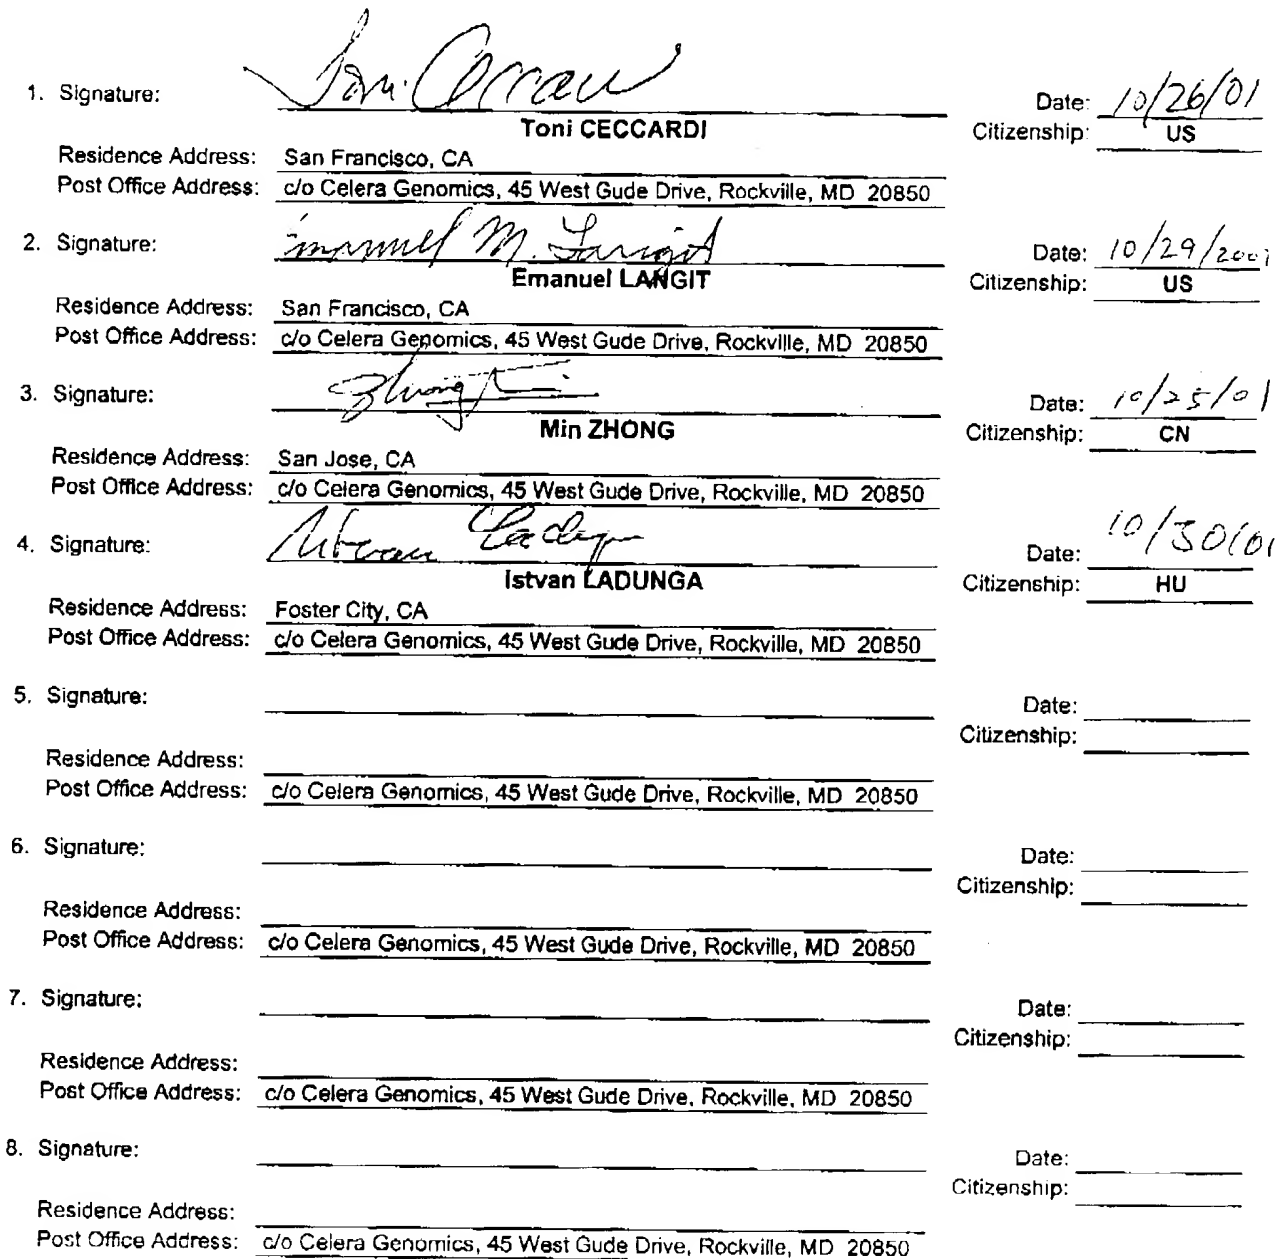 1. Signature: Toni Ceccardi Date: 10/26/01
Toni CECCARDI Citizenship: US
Residence Address: San Francisco, CA
Post Office Address: c/o Celera Genomics, 45 West Gude Drive, Rockville, MD 20850
2. Signature: Emanuel M. Langit Date: 10/29/2001
Emanuel LANGIT Citizenship: US
Residence Address: San Francisco, CA
Post Office Address: c/o Celera Genomics, 45 West Gude Drive, Rockville, MD 20850
3. Signature: Zhong Min Date: 10/25/01
Min ZHONG Citizenship: CN
Residence Address: San Jose, CA
Post Office Address: c/o Celera Genomics, 45 West Gude Drive, Rockville, MD 20850
4. Signature: Istvan Ladunga Date: 10/30/01
Istvan LADUNGA Citizenship: HU
Residence Address: Foster City, CA
Post Office Address: c/o Celera Genomics, 45 West Gude Drive, Rockville, MD 20850
5. Signature: Date:
Citizenship:
Residence Address:
Post Office Address: c/o Celera Genomics, 45 West Gude Drive, Rockville, MD 20850
6. Signature: Date:
Citizenship:
Residence Address:
Post Office Address: c/o Celera Genomics, 45 West Gude Drive, Rockville, MD 20850
7. Signature: Date:
Citizenship:
Residence Address:
Post Office Address: c/o Celera Genomics, 45 West Gude Drive, Rockville, MD 20850
8. Signature: Date:
Citizenship:
Residence Address:
Post Office Address: c/o Celera Genomics, 45 West Gude Drive, Rockville, MD 20850